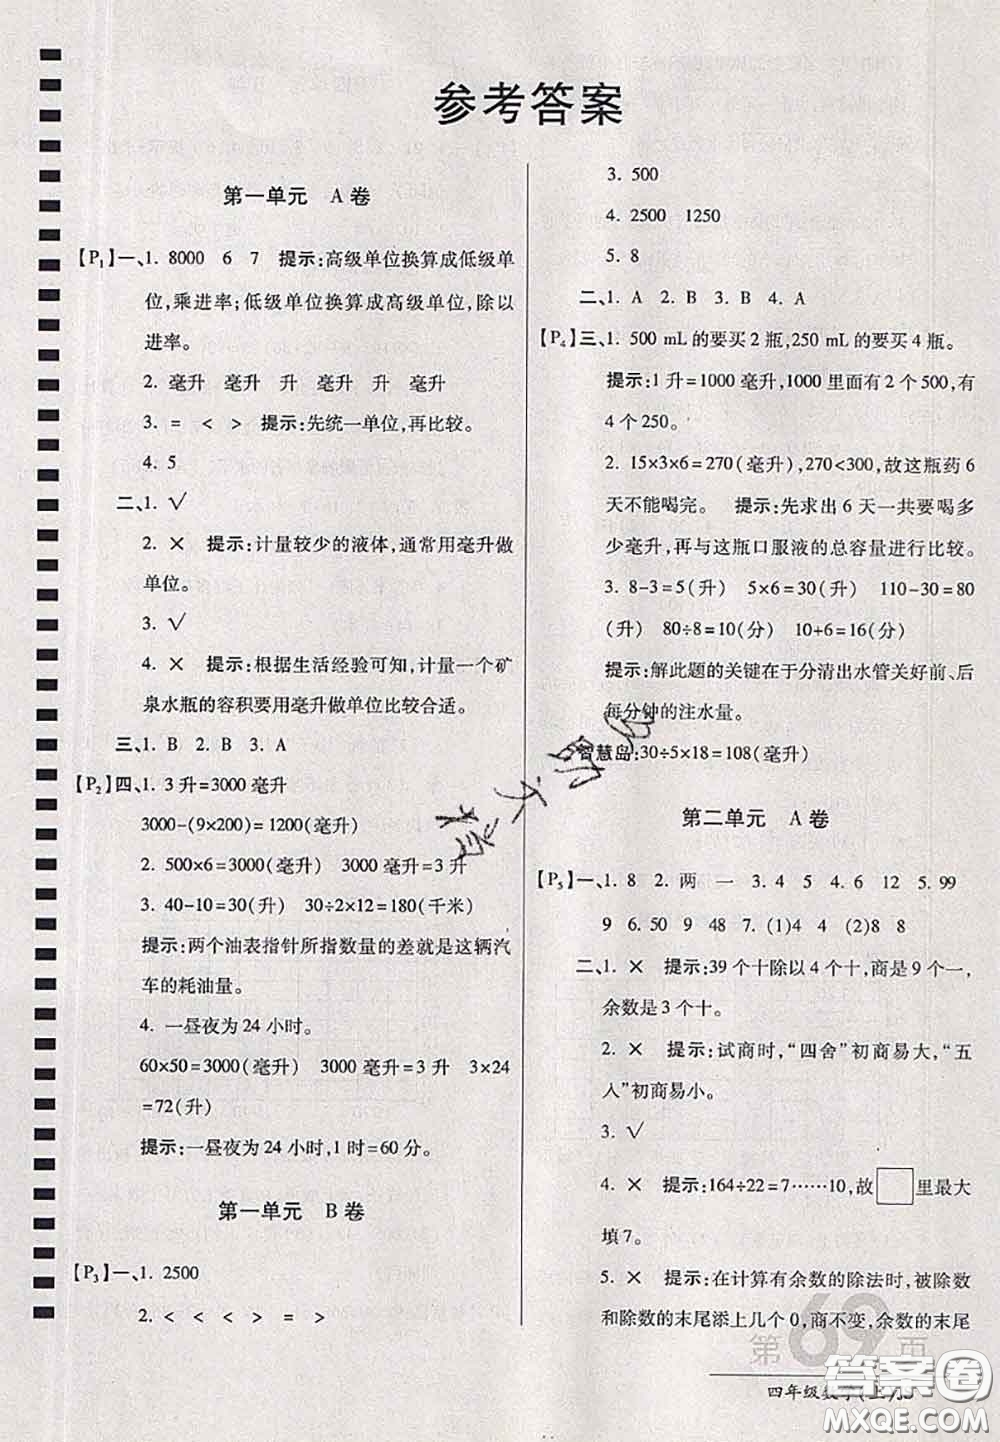 参考答案
第一单元 A卷
【P1】一、1. 8000 6 7 提示:高级单位换算成低级单
位,乘进率;低级单位换算成高级单位,除以
进率。
2. 毫升 毫升 升 升 升 毫升
3. = < > 提示:先统一单位,再比较。
4. 5
二、1. √
2. × 提示:计量较少的液体,通常用毫升做
单位。
3. √
4. × 提示:根据生活经验可知,计量一个矿
泉水瓶的容积要用毫升做单位比较合适。
三、1. B 2. B 3. A
【P2】四、1. 3升=3000毫升
3000-(9×200)=1200(毫升)
2. 500×6=3000(毫升) 3000毫升=3升
3. 40-10=30(升) 30÷2×12=180(千米)
提示:两个油表指针所指数量的差就是这辆汽
车的耗油量。
4. 一昼夜为24小时。
60×50=3000(毫升) 3000毫升=3升 3×24
=72(升)
提示:一昼夜为24小时,1时=60分。
第一单元 B卷
【P3】一、1. 2500
2. < < < < > = >
3. 500
4. 2500 1250
5. 8
二、1. A 2. B 3. B 4. A
【P4】三、1. 500 mL的要买2瓶,250 mL的要买4瓶。
提示:1升=1000毫升,1000里面有2个500,有
4个250。
2. 15×3×6=270(毫升),270<300,故这瓶药6
天不能喝完。 提示:先求出6天一共要喝多
少毫升,再与这瓶口服液的总容量进行比较。
3. 8-3=5(升) 5×6=30(升) 110-30=80
(升) 80÷8=10(分) 10+6=16(分)
提示:解此题的关键在于分清出水管关好前、后
每分钟的注水量。
智慧岛:30÷5×18=108(毫升)
第二单元 A卷
【P5】一、1. 8 2. 两 一 3. 4 5 4. 6 12 5. 99
9 6. 50 9 48 7. (1)4 (2)8 8
二、1. × 提示:39个十除以4个十,商是9个一,
余数是3个十。
2. × 提示:试商时,“四舍”初商易大,“五
入”初商易小。
3. √
4. × 提示:164÷22=7……10,故□里最大
填7。
5. × 提示:在计算有余数的除法时,被除数
和除数的末尾添上几个0,商不变,余数的末尾
第69页
四年级数学(上)
答案圈
MXQE.COM